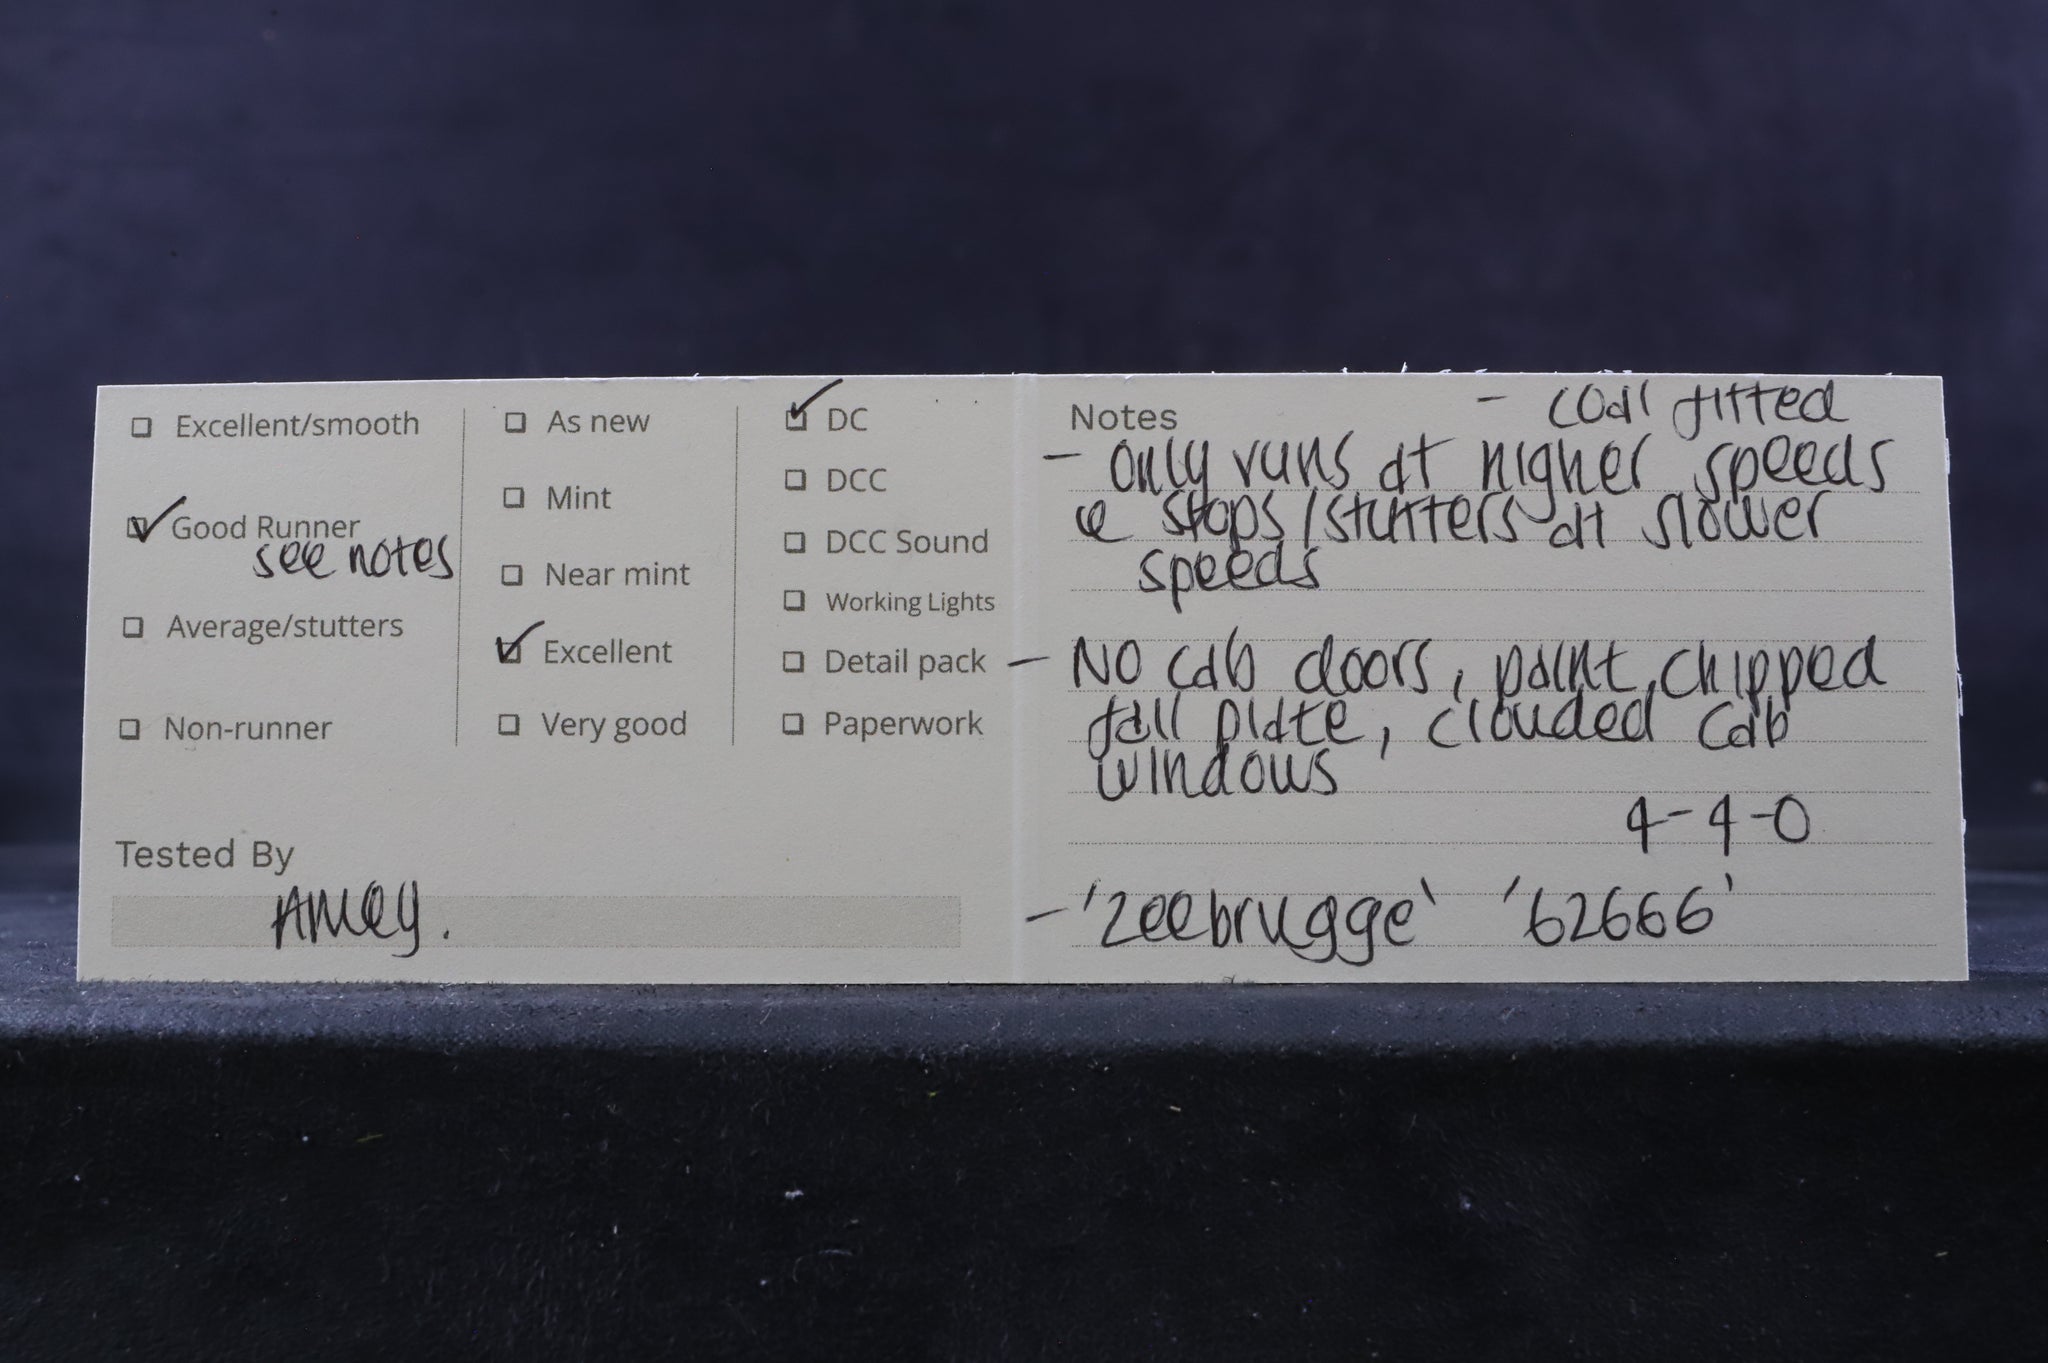 Excellent/smooth
Good Runner
see notes
Average/stutters
Non-runner
As new
Mint
Near mint
Excellent
Very good
DC
DCC
DCC Sound
Working Lights
Detail pack
Paperwork
Tested By
Amey.
Notes
- coal fitted
- only runs at higher speeds
& stops/stutters at slower
speeds
- No cab doors, paint chipped
fall plate, clouded cab
windows
4-4-0
- 'Zeebrugge' '62666'